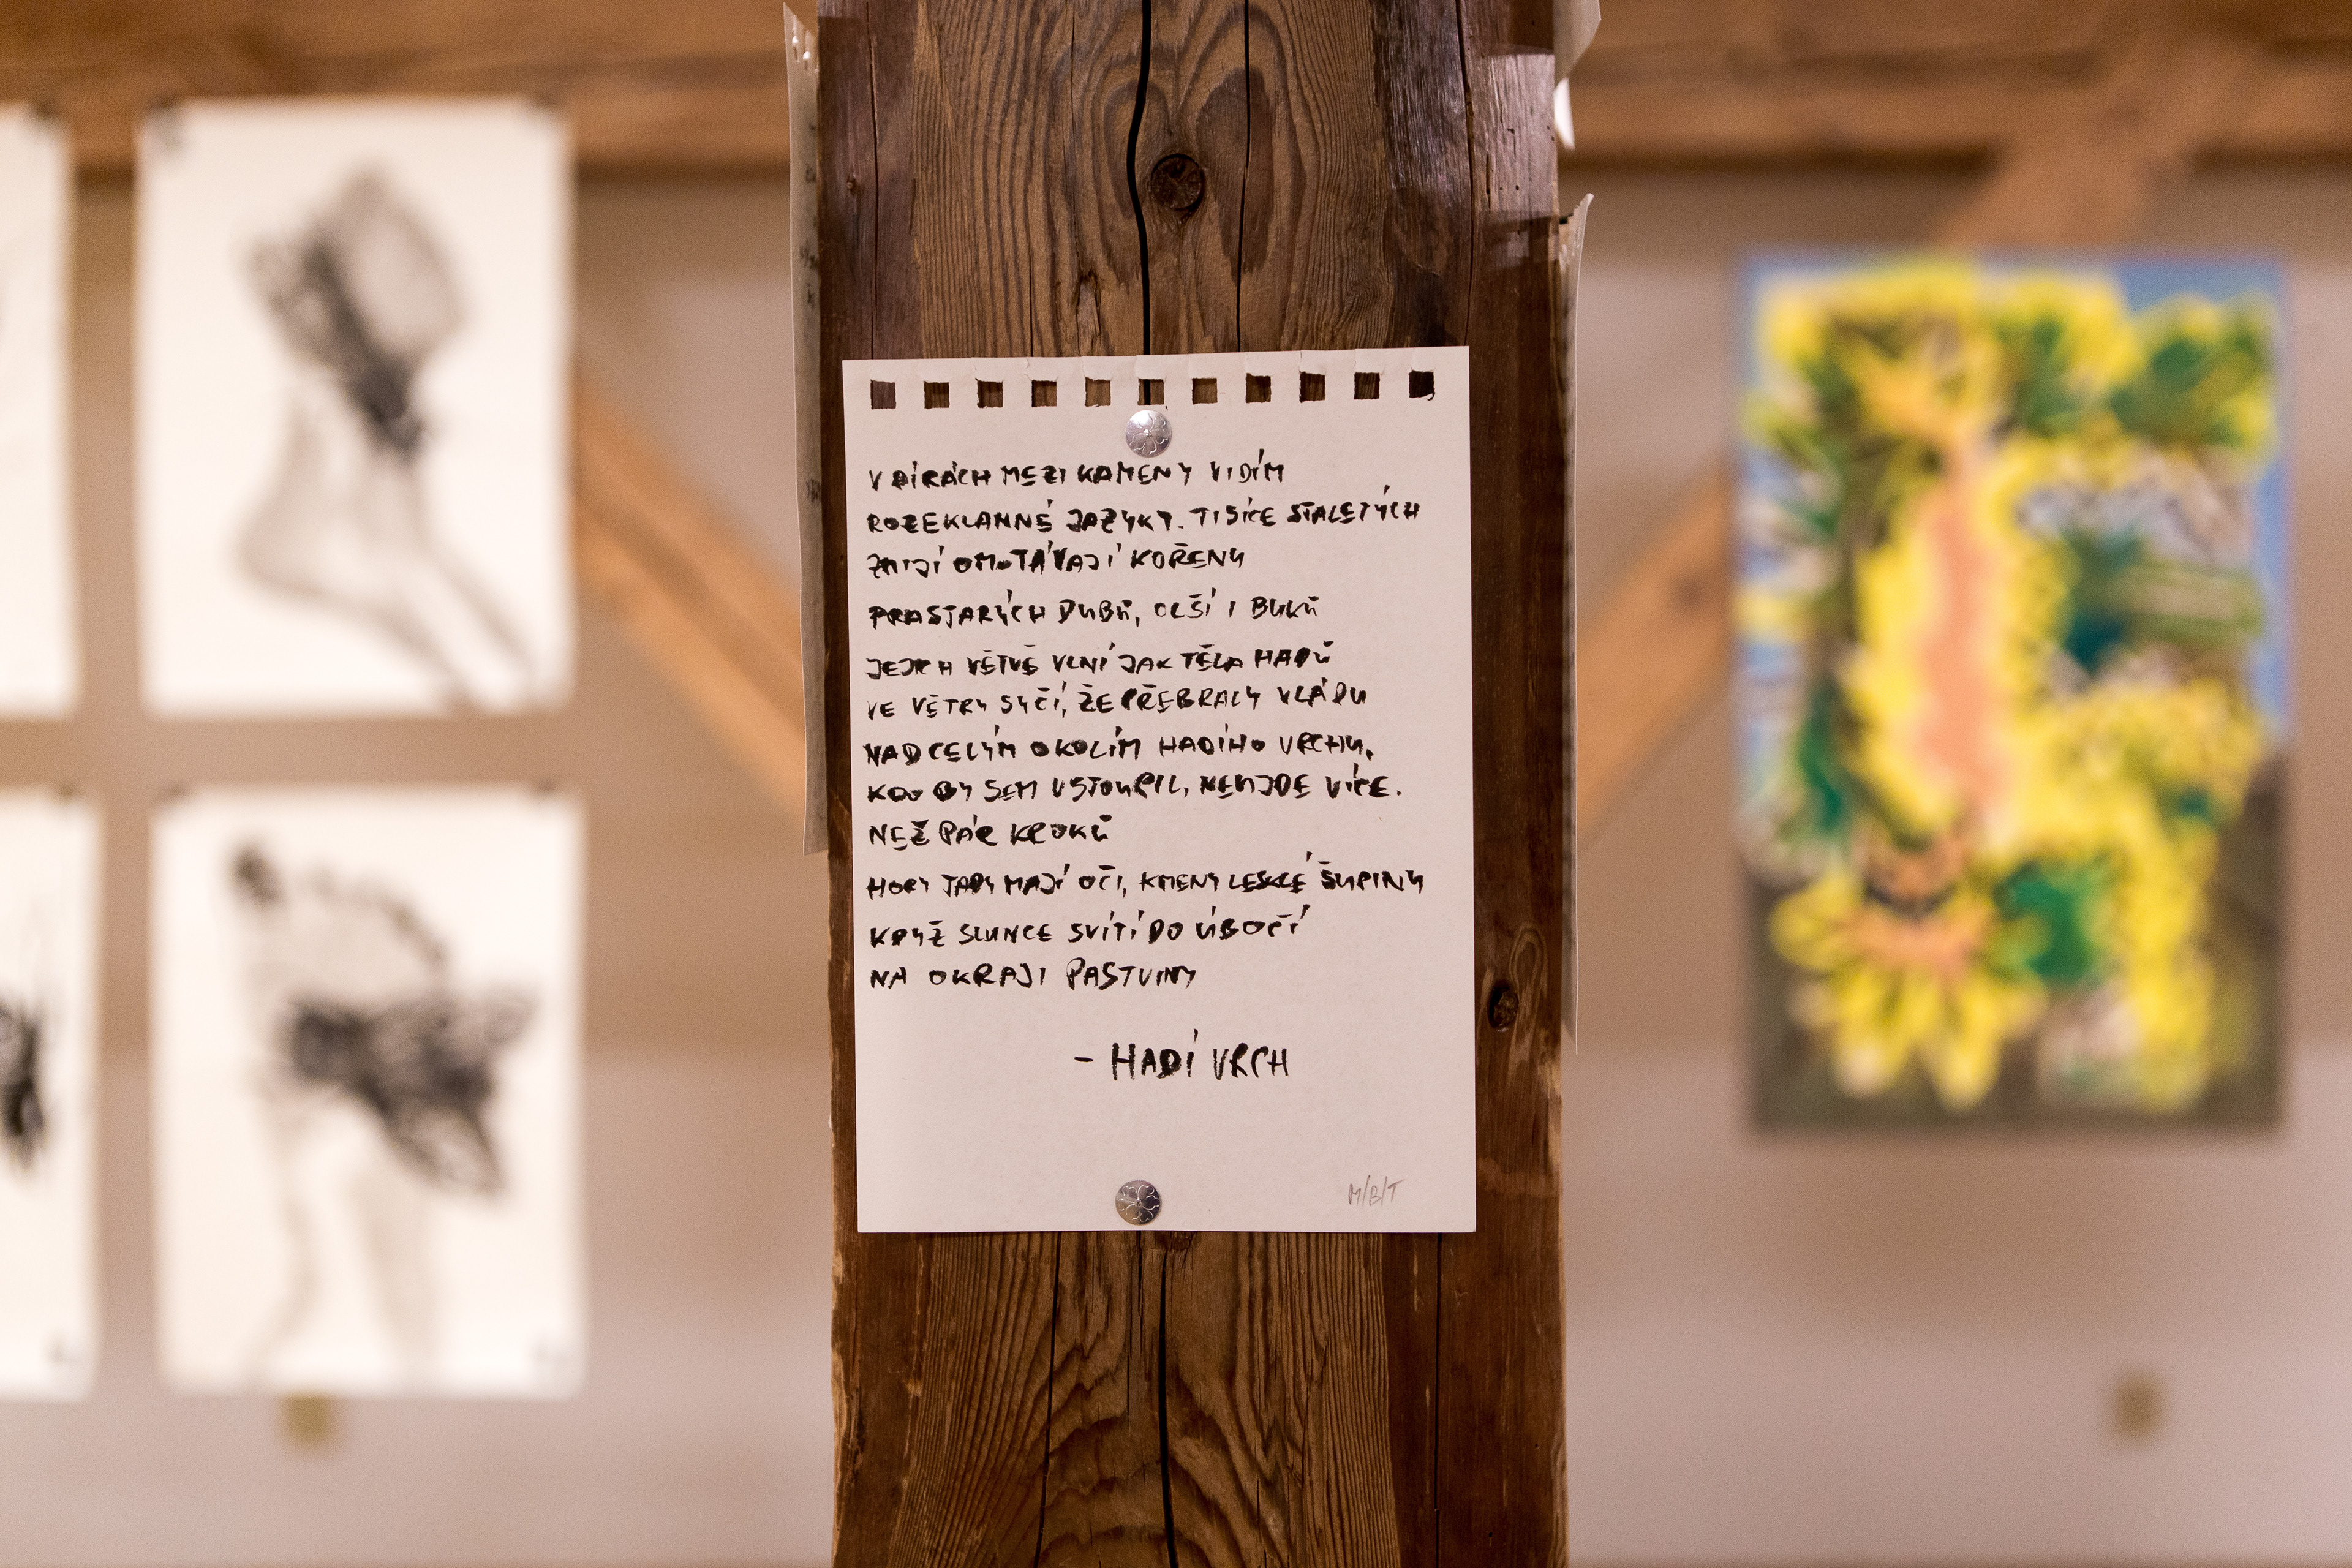 V DÍRÁCH MEZI KAMENY VIDÍM
ROZEKLANNÉ JAZYKY. TISÍCE STALETÝCH
ZMIJÍ OMOTÁVAJÍ KOŘENY
PRASTARÝCH DUBŮ, OLŠÍ I BUKŮ
JEJICH VĚTVĚ VLNÍ JAK TĚLA HADŮ
VE VĚTRY SYČÍ, ŽE PŘEBRALY VLÁDU
NAD CELÝM OKOLÍM HADÍHO VRCHU.
KDO BY SEM VSTOUPIL, NEUJDE VÍCE.
NEŽ PÁR KROKŮ
HORY TADY MAJÍ OČI, KMENY LESKLÉ ŠUPINY
KDYŽ SLUNCE SVÍTÍ DO ÚBOČÍ
NA OKRAJI PASTVINY
- HADÍ VRCH
M/B/T